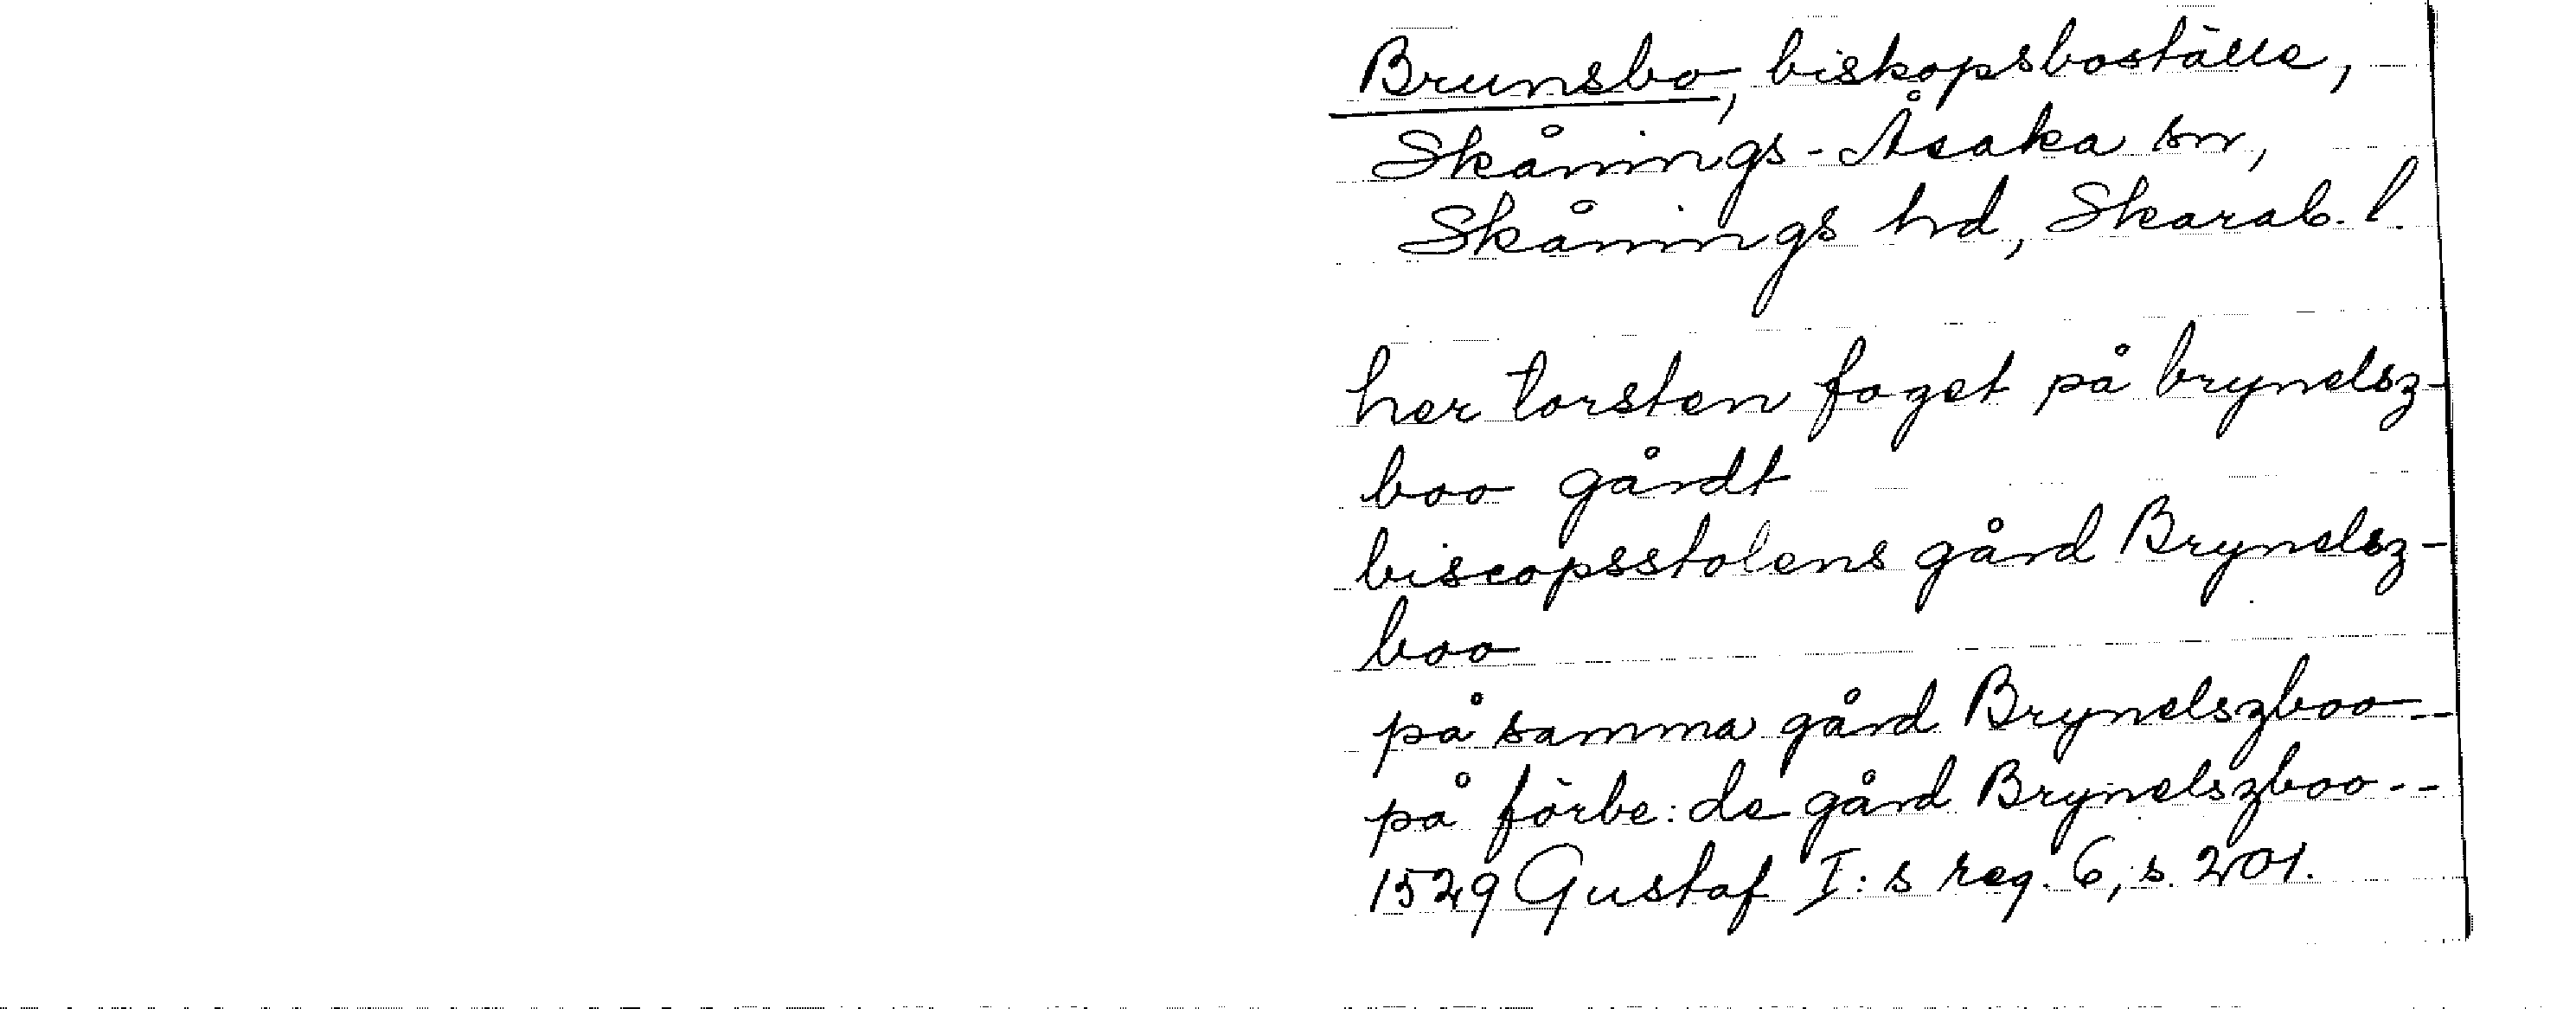 Brunsbo, biskopsboställe,
Skånings-Åsaka sn,
Skånings hd, Skarab. l.
her torsten foget på brynelsz-
boo gårdt
biscopsstolens gård Brynelsz-
boo
på samma gård Brynelszboo--
på förbe:de gård Brynelszboo--
1529 Gustaf I:s reg. 6, s. 201.